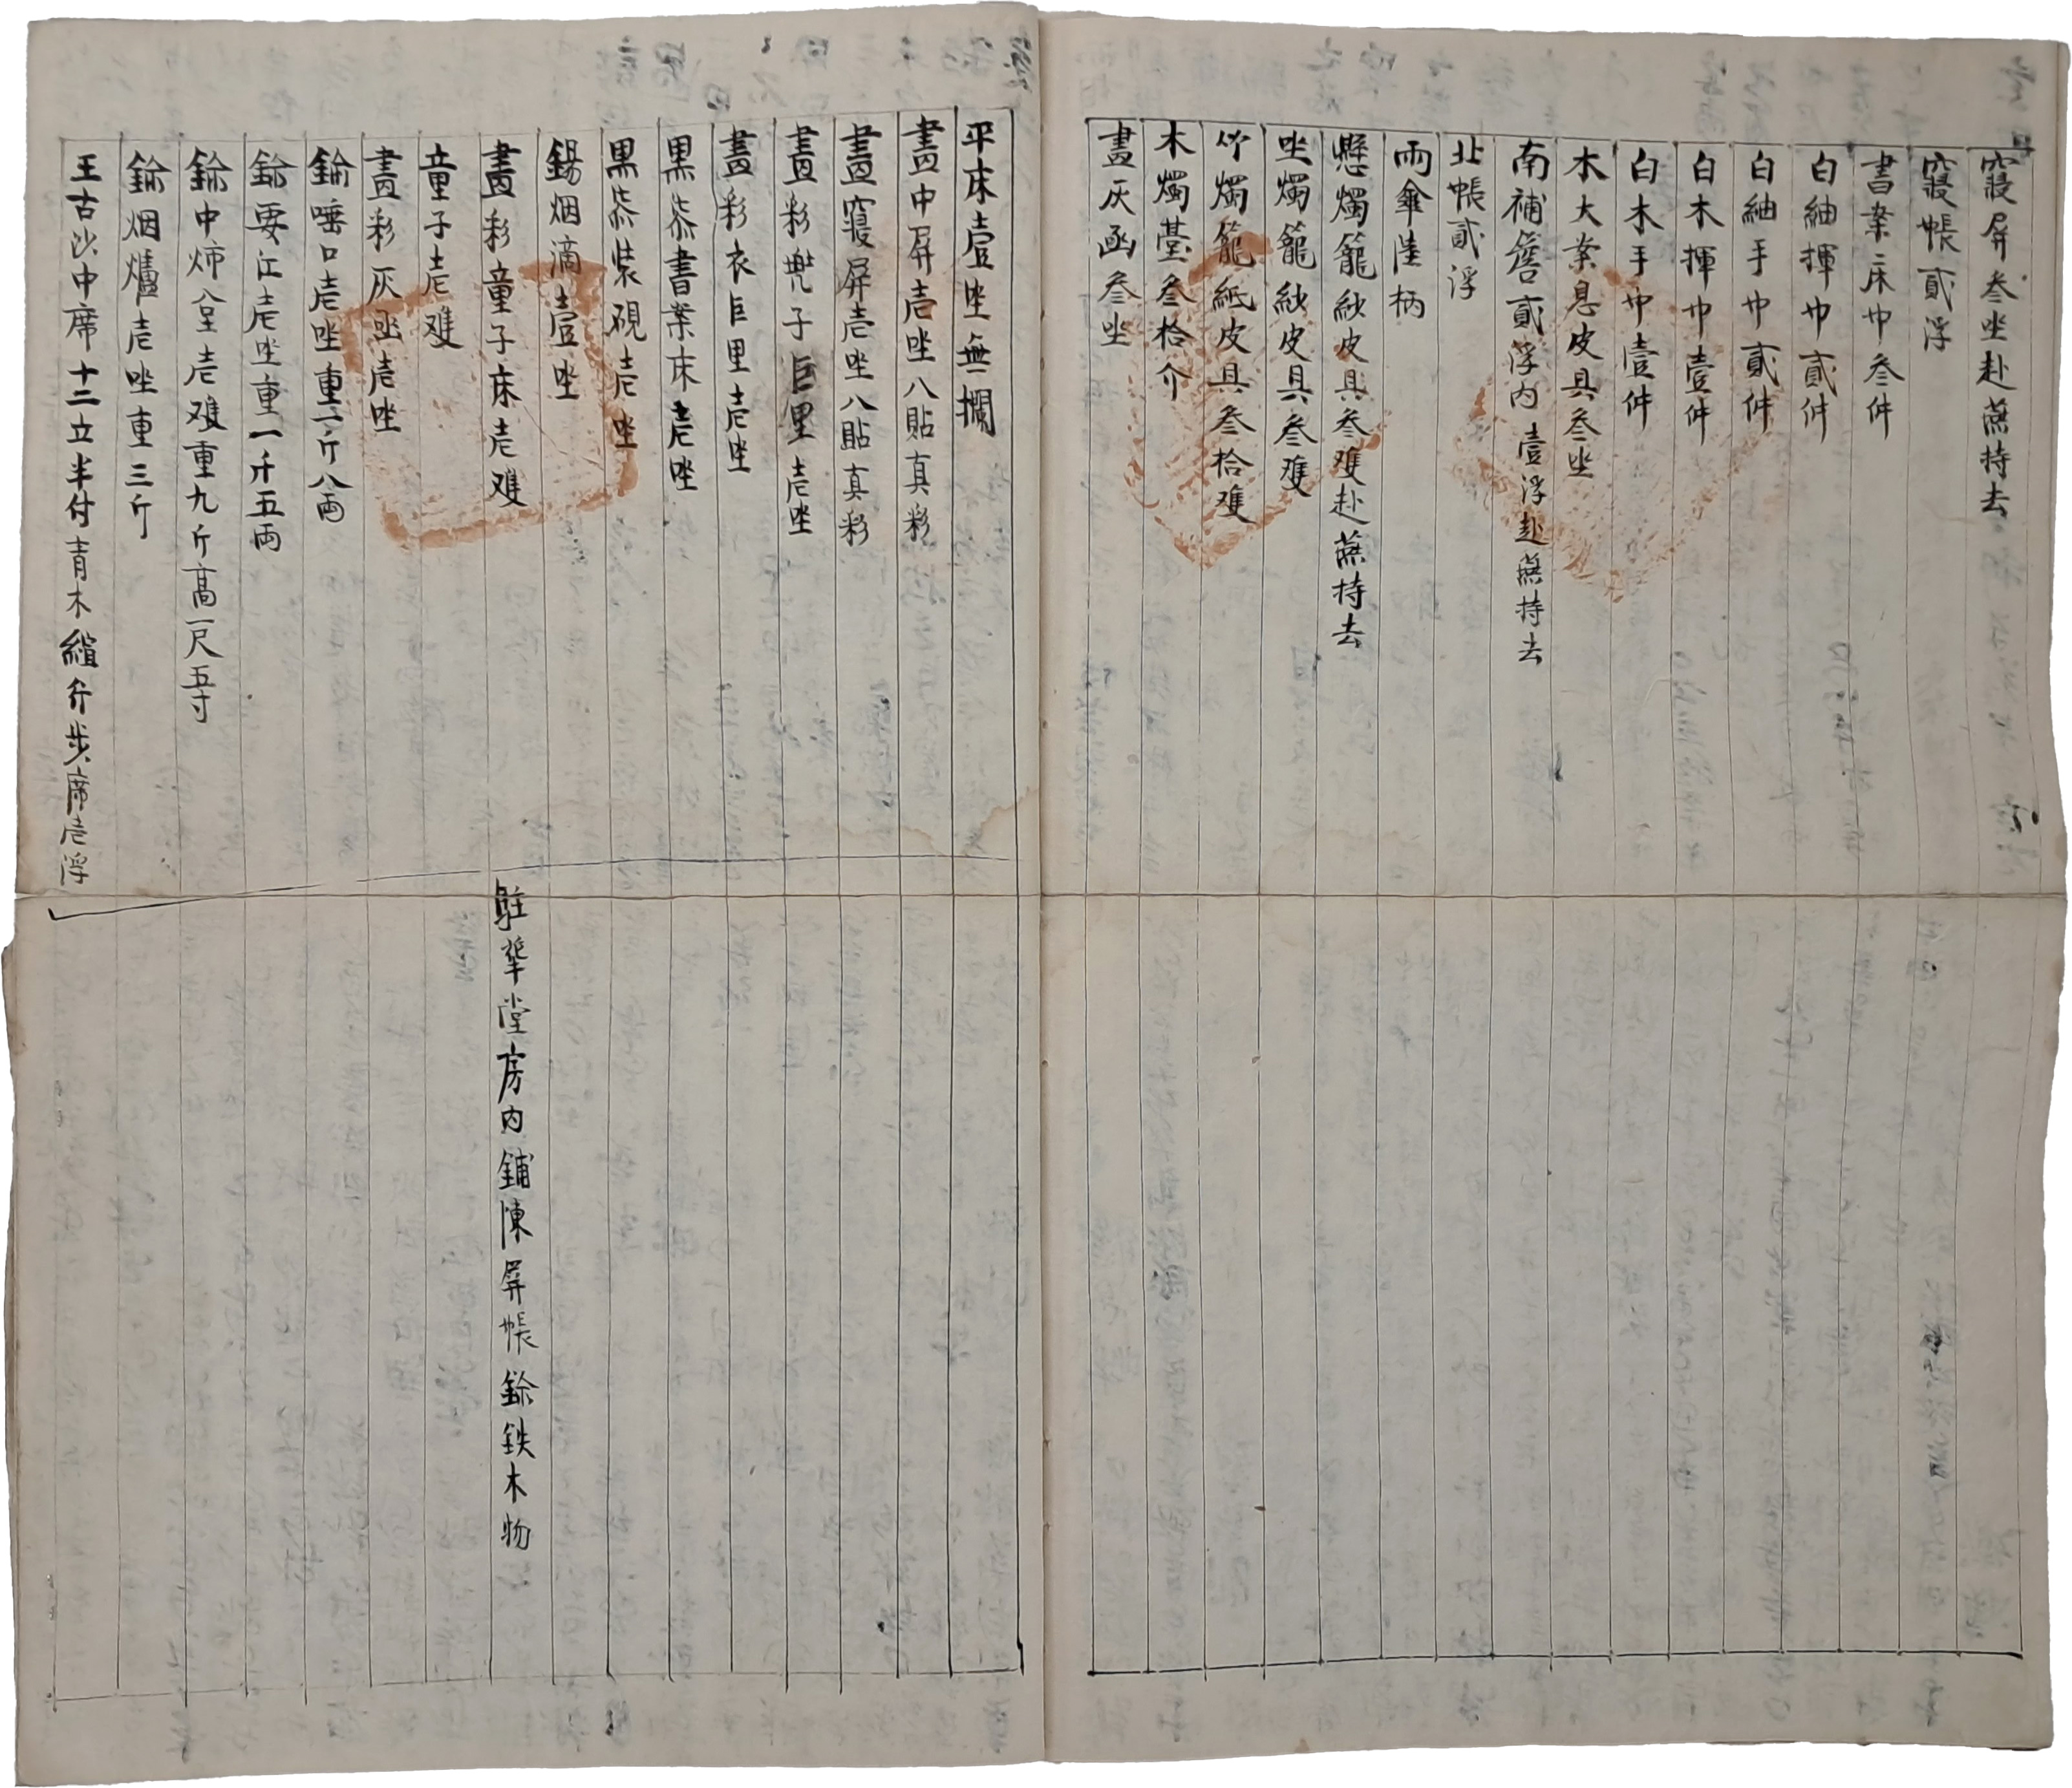 寢屛叁坐赴燕持去
寢帳貳浮
書案床巾叁件
白紬揮巾貳件
白紬手巾貳件
白木揮巾壹件
白木手巾壹件
木大案息皮具叁坐
南補簷貳浮內壹浮赴燕持去
北帳貳浮
雨傘陸柄
懸燭籠紗皮具叁雙赴燕持去
坐燭籠紗皮具叁雙
竹燭籠紙皮具叁拾雙
木燭臺叁拾介
畫灰函叁坐
平床壹坐無欄
畫中屛壱坐八貼真彩
畫寢屛壱坐八貼真彩
畫彩兠子巨里壱坐
畫彩衣巨里壱坐
黑柒書案床壱坐
黑柒裝硯壱坐
錫烟滴壹坐
畫彩童子床壱雙
童子壱雙
畫彩灰函壱坐
鍮唾口壱坐重二斤八兩
鍮要江壱坐重一斤五兩
鍮中炉台壱雙重九斤高一尺五寸
鍮烟爐壱坐重三斤
王古沙中席十二立半付青木縇行步席壱浮
駐蹕堂房內鋪陳屛帳鍮鉄木物